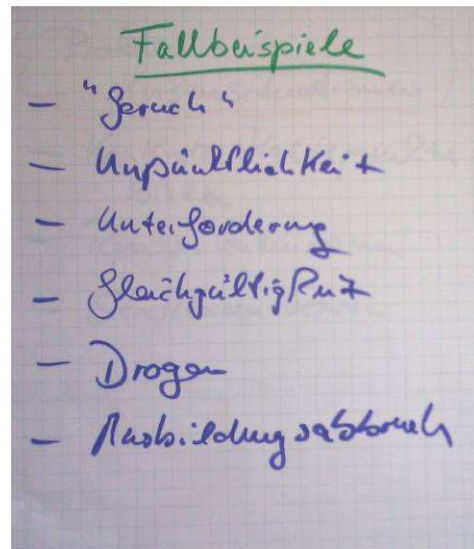 Fallbeispiele
- "Geruch"
- Unpünktlichkeit
- Unterforderung
- Gleichgültigkeit
- Drogen
- Ausbildungsabbruch